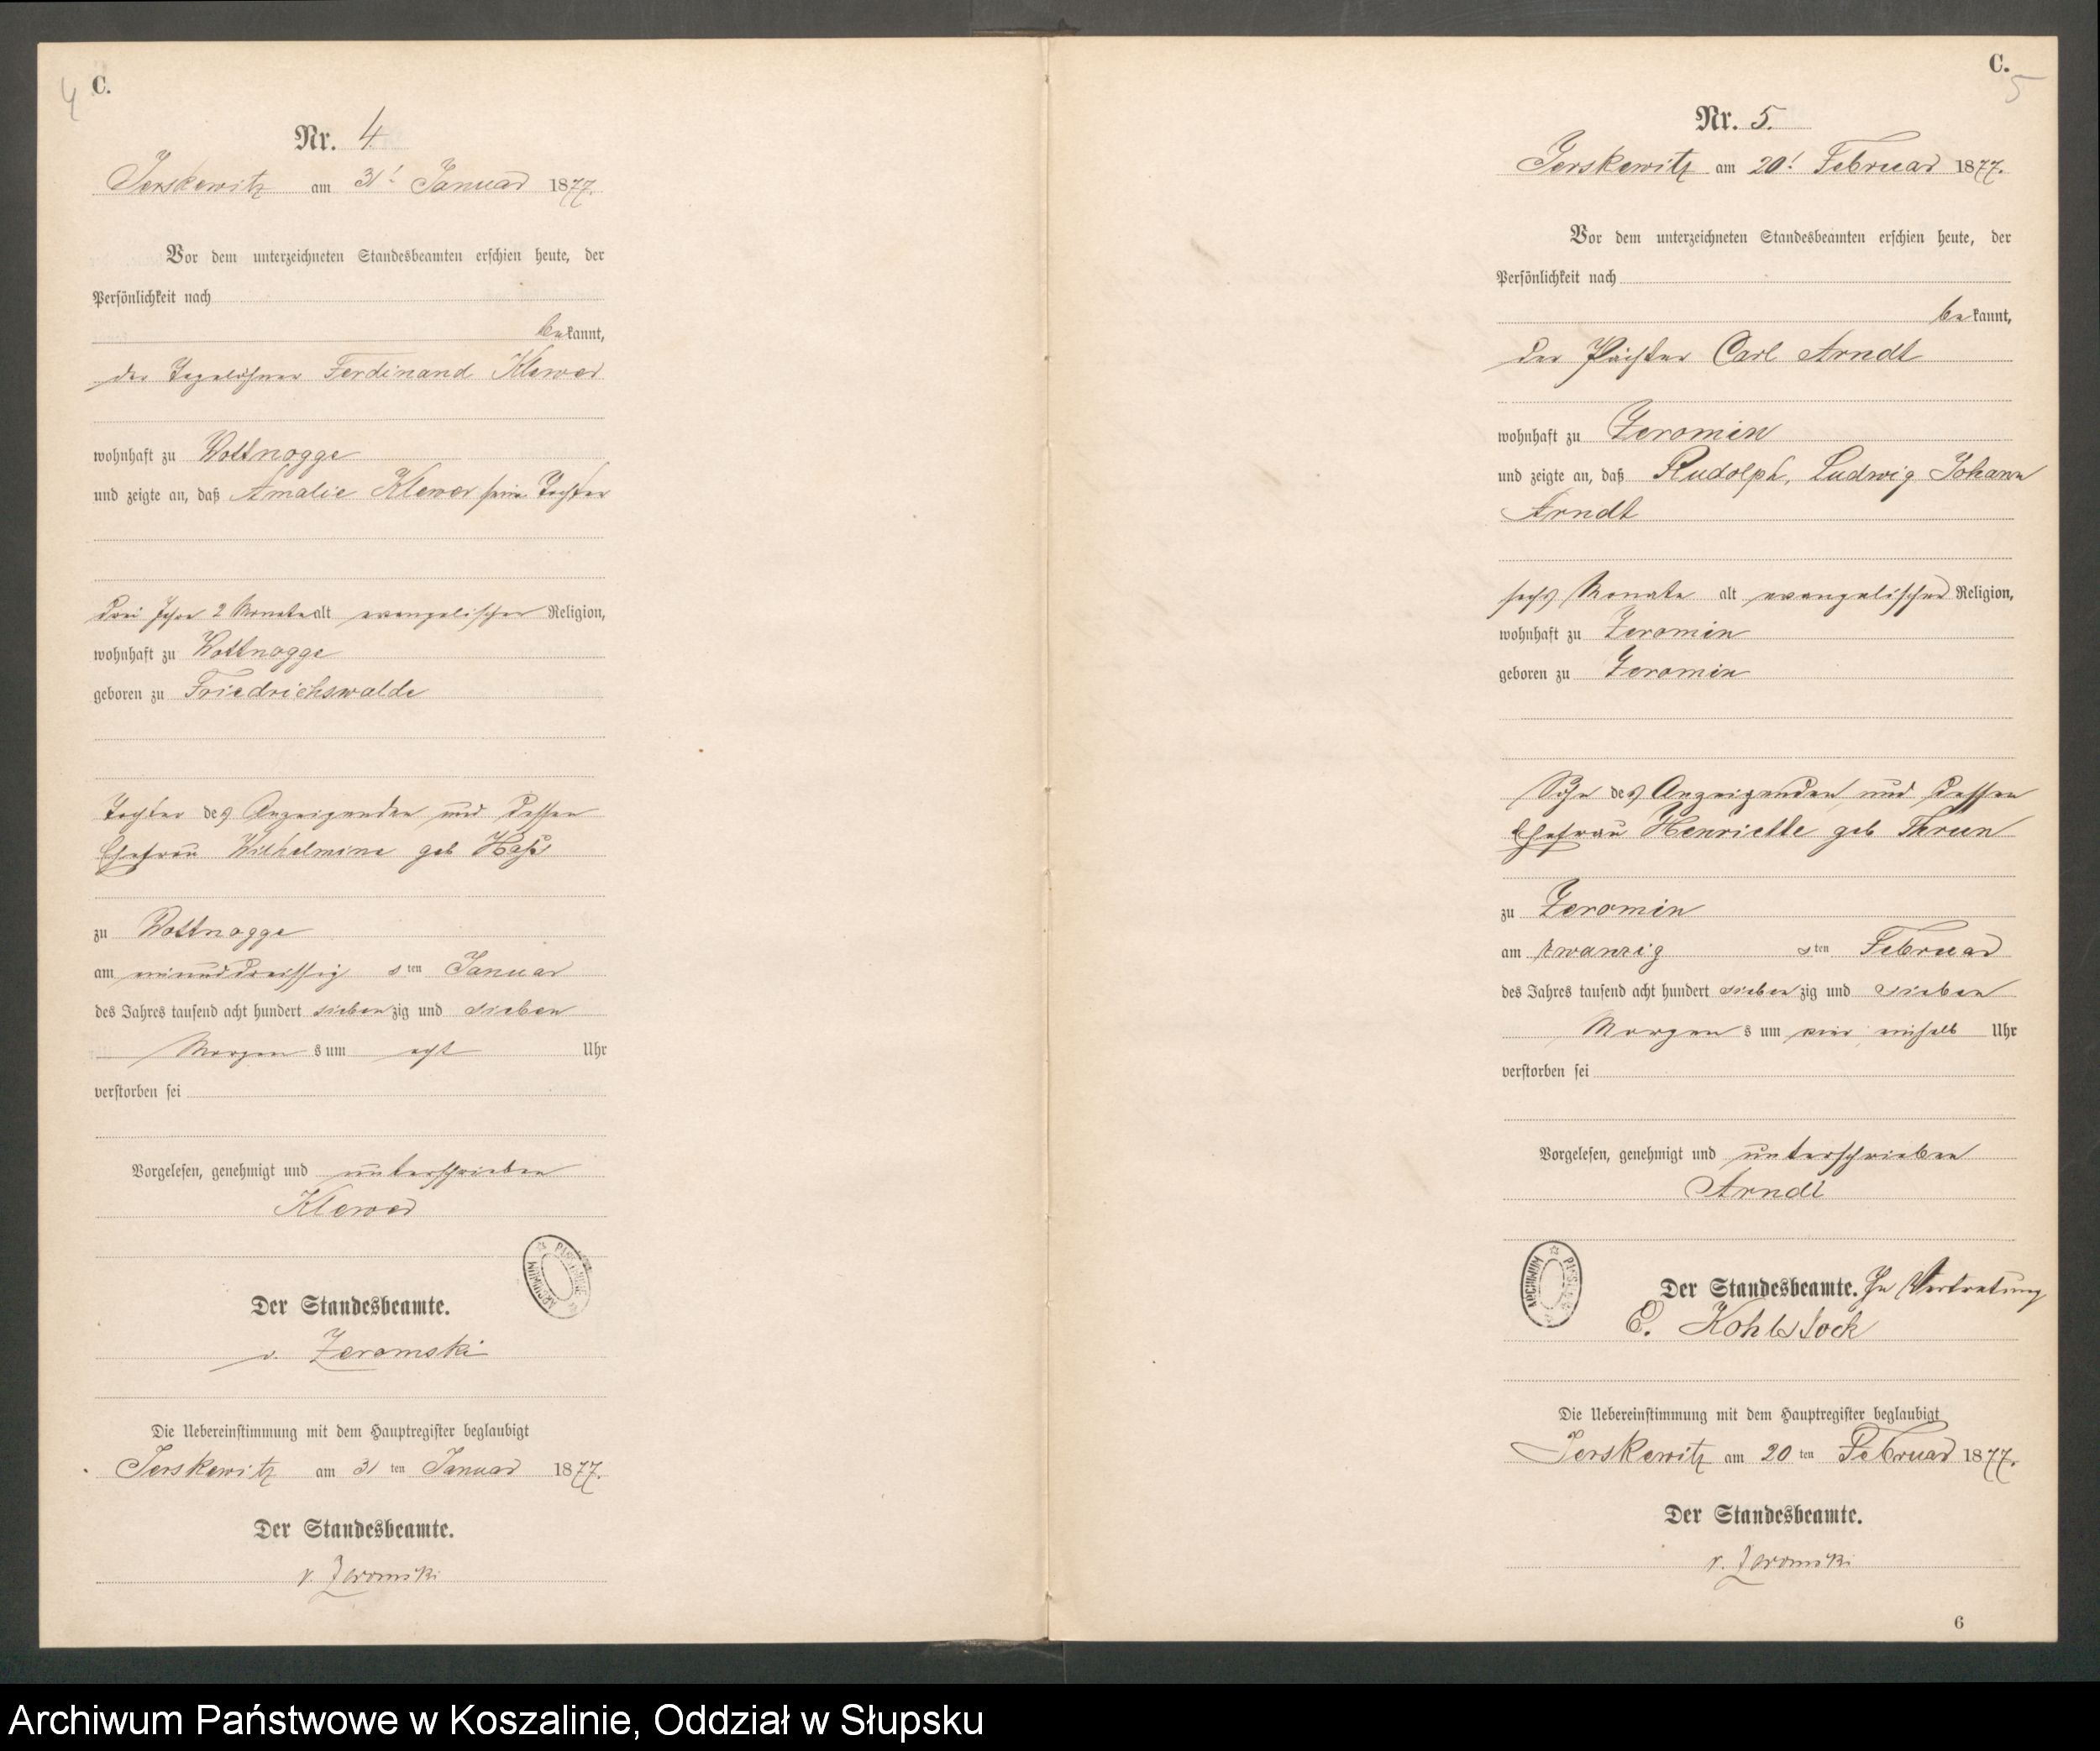 4
C.
Nr. 4
Jerskewitz am 31t Januar 1877.
Vor dem unterzeichneten Standesbeamten erschien heute, der
Persönlichkeit nach
bekannt,
der Tagelöhner Ferdinand Klewer
wohnhaft zu Wottnogge
und zeigte an, daß Amalie Klewer seine Tochter
drei Jahre 2 Monate alt evangelischer Religion,
wohnhaft zu Wottnogge
geboren zu Friedrichswalde
Tochter des Anzeigenden und dessen
Ehefrau Wilhelmine geb Haß
zu Wottnogge
am einunddreissig sten Januar
des Jahres tausend acht hundert siebenzig und sieben
Morgens um acht Uhr
verstorben sei
Vorgelesen, genehmigt und unterschrieben
Klewer
ARCHIWUM
Der Standesbeamte.
v. Zeromski
Die Uebereinstimmung mit dem Hauptregister beglaubigt
Jerskewitz am 31 ten Januar 1877.
Der Standesbeamte.
v. Zeromski
C.
5
Nr. 5.
Jerskewitz am 20t Februar 1877.
Vor dem unterzeichneten Standesbeamten erschien heute, der
Persönlichkeit nach
bekannt,
der Pächter Carl Arndt
wohnhaft zu Zeromin
und zeigte an, daß Rudolph, Ludwig Johann
Arndt
sechs Monate alt evangelischer Religion,
wohnhaft zu Zeromin
geboren zu Zeromin
Sohn des Anzeigenden und dessen
Ehefrau Henriette geb Threun
zu Zeromin
am zwanzig sten Februar
des Jahres tausend acht hundert siebenzig und sieben
Morgens um vier einhalb Uhr
verstorben sei
Vorgelesen, genehmigt und unterschrieben
Arndt
ARCHIWUM
Der Standesbeamte. In Vertretung
E. Kohlstock
Die Uebereinstimmung mit dem Hauptregister beglaubigt
Jerskewitz am 20 ten Februar 1877.
Der Standesbeamte.
v. Zeromski
6
Archiwum Państwowe w Koszalinie, Oddział w Słupsku